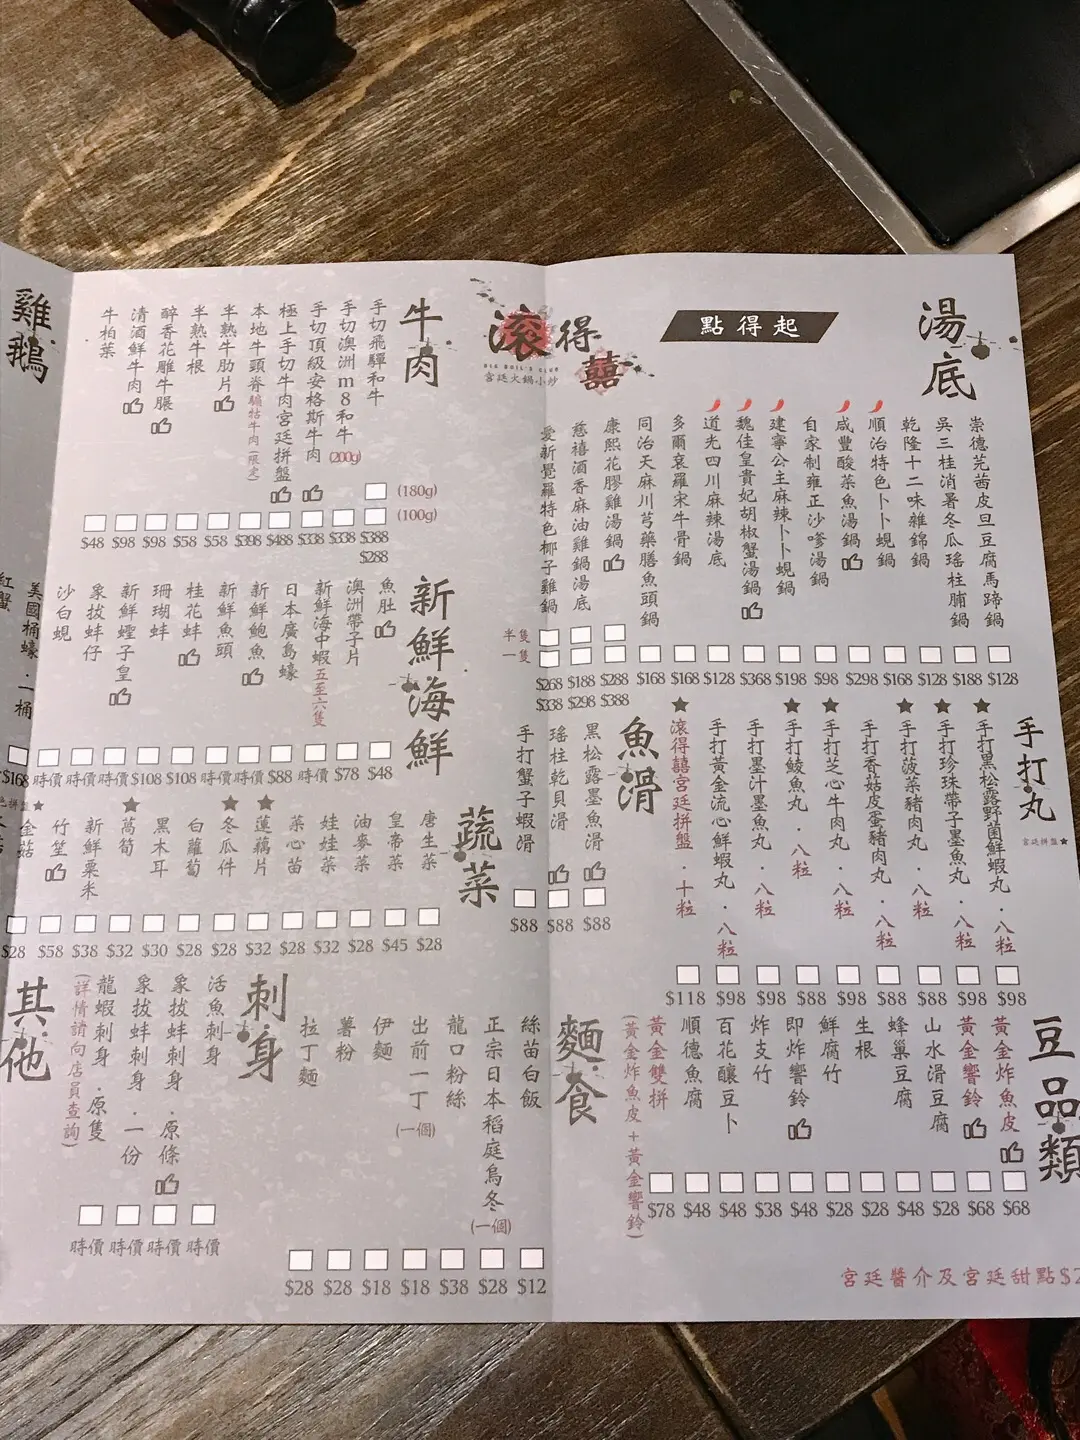 點得起
滾得囍
BIG BOIL'S CLUB
宮廷火鍋小炒
湯底
崇德芫茜皮旦豆腐馬蹄鍋 $128
吳三桂消暑冬瓜瑤柱脯鍋 $188
乾隆十二味雜錦鍋 $128
順治特色卜卜蜆鍋 $168
咸豐酸菜魚湯鍋 $298
自家制雍正沙嗲湯鍋 $98
建寧公主麻辣卜卜蜆鍋 $198
魏佳皇貴妃胡椒蟹湯鍋 $368
道光四川麻辣湯底 $128
多爾袞羅宋牛骨鍋 $168
同治天麻川芎藥膳魚頭鍋 $168
康熙花膠雞湯鍋 $288 $388
慈禧酒香麻油雞鍋湯底 $188 $298
愛新覺羅特色椰子雞鍋 $268 $338
半隻
一隻
牛肉
手切飛驒和牛 (180g) (100g) $388 $288
手切澳洲m8和牛(200g) $338
手切頂級安格斯牛肉 $338
極上手切牛肉宮廷拼盤 $488
本地牛頸脊騸牯牛肉(限定) $398
半熟牛肋片 $58
半熟牛根 $58
醉香花雕牛脹 $98
清酒鮮牛肉 $98
牛柏葉 $48
雞鵝
新鮮海鮮
魚肚 $48
澳洲帶子片 $78
新鮮海中蝦五至六隻 時價
日本廣島蠔 $88
新鮮鮑魚 時價
新鮮魚頭 時價
桂花蚌 $108
珊瑚蚌 $108
新鮮蟶子皇 時價
象拔蚌仔 時價
沙白蜆 時價
美國桶蠔．一桶 $168
紅蟹
手打丸
宮廷拼盤★
手打黑松露野菌鮮蝦丸．八粒 $98
手打珍珠帶子墨魚丸．八粒 $98
手打菠菜豬肉丸．八粒 $88
手打香菇皮蛋豬肉丸．八粒 $88
手打芝心牛肉丸．八粒 $98
手打鯪魚丸．八粒 $88
手打墨汁墨魚丸．八粒 $98
手打黃金流心鮮蝦丸．八粒 $98
滾得囍宮廷拼盤．十粒 $118
魚滑
黑松露墨魚滑 $88
瑤柱乾貝滑 $88
手打蟹子蝦滑 $88
蔬菜
唐生菜 $28
皇帝菜 $45
油麥菜 $28
娃娃菜 $32
菜心苗 $28
蓮藕片 $32
冬瓜件 $28
白蘿蔔 $28
黑木耳 $30
萵筍 $32
新鮮粟米 $38
竹笙 $58
金菇 $28
豆品類
黃金炸魚皮 $68
黃金響鈴 $68
山水滑豆腐 $28
蜂巢豆腐 $48
生根 $28
鮮腐竹 $28
即炸響鈴 $48
炸支竹 $38
百花釀豆卜 $48
順德魚腐 $48
黃金雙拼 $78
(黃金炸魚皮+黃金響鈴)
麵食
絲苗白飯 $12
正宗日本稻庭烏冬(一個) $28
龍口粉絲 $38
出前一丁(一個) $18
伊麵 $18
薯粉 $28
拉丁麵 $28
刺身
活魚刺身 時價
象拔蚌刺身．原條 時價
象拔蚌刺身．一份 時價
龍蝦刺身．原隻 時價
(詳情請向店員查詢)
其他
宮廷醬介及宮廷甜點$2